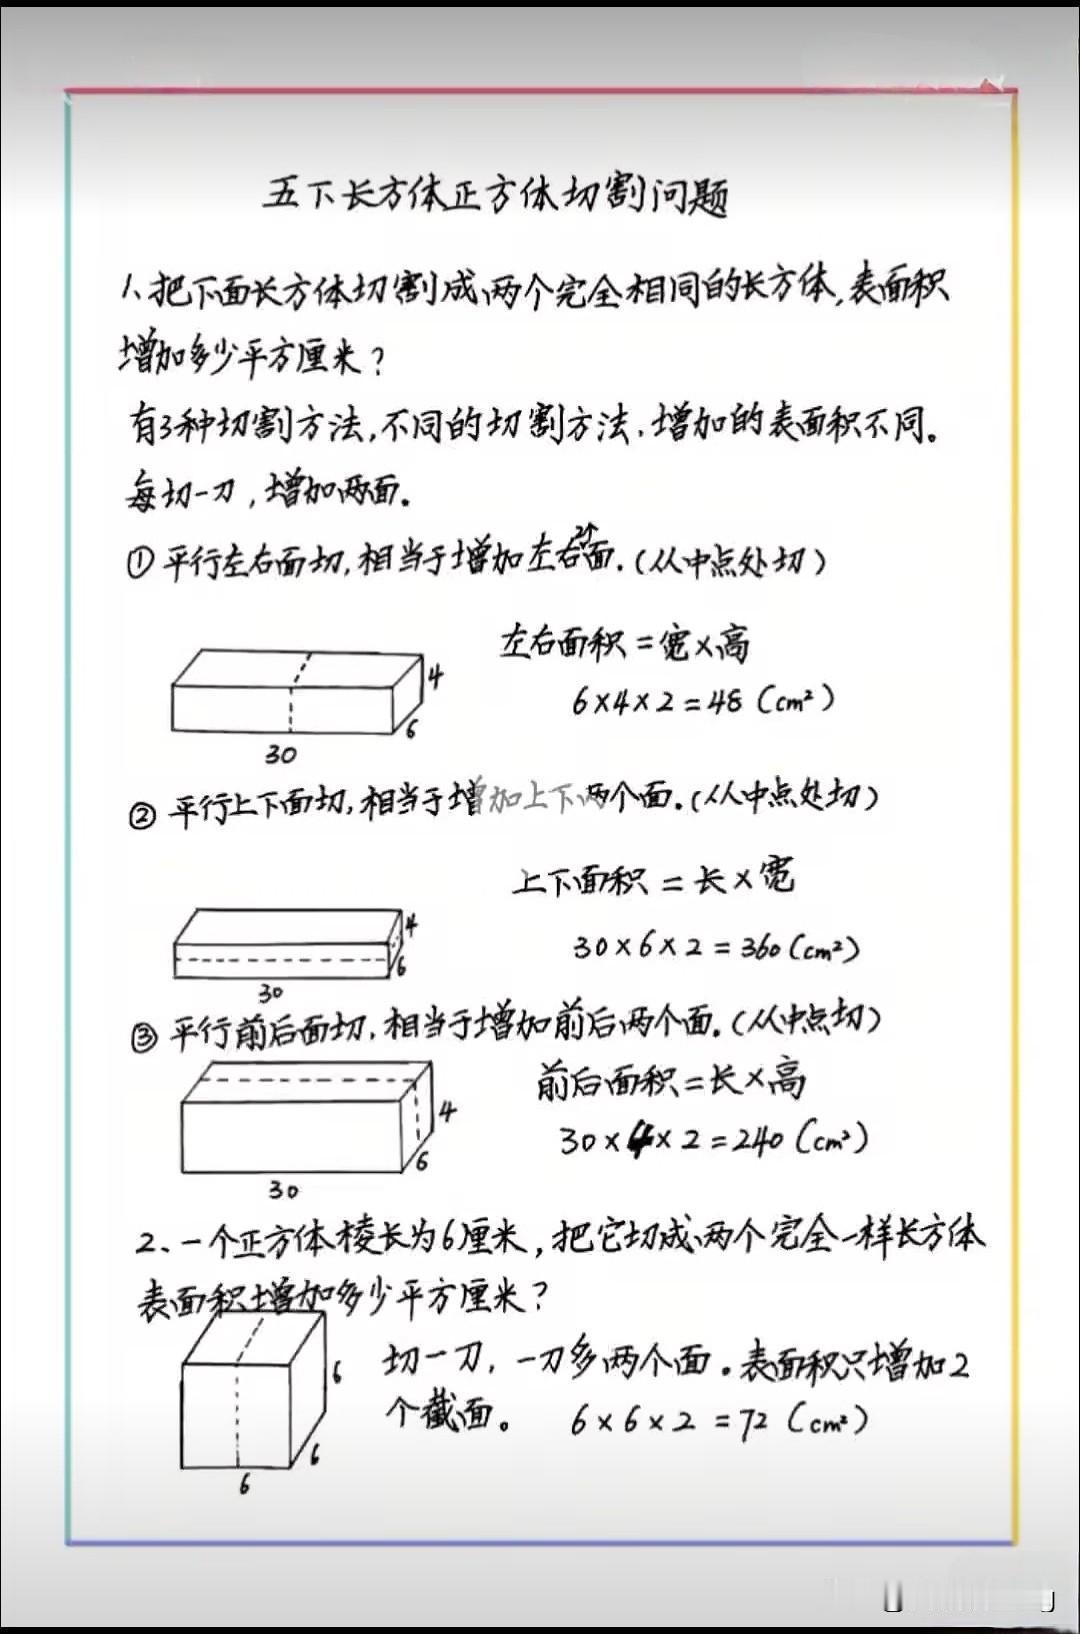 五下长方体正方体切割问题
1、把下面长方体切割成两个完全相同的长方体,表面积
增加多少平方厘米?
有3种切割方法,不同的切割方法,增加的表面积不同。
每切一刀,增加两面。
2个
① 平行左右面切,相当于增加左右面.(从中点处切)
左右面积=宽×高
6×4×2=48(cm²)
4
6
30
② 平行上下面切,相当于增加上下两个面.(从中点处切)
上下面积=长×宽
30×6×2=360(cm²)
4
6
30
③ 平行前后面切,相当于增加前后两个面.(从中点切)
前后面积=长×高
30×4×2=240(cm²)
4
6
30
2、一个正方体棱长为6厘米,把它切成两个完全一样长方体
表面积增加多少平方厘米?
切一刀,一刀多两个面。表面积只增加2
个截面。 6×6×2=72(cm²)
6
6
6